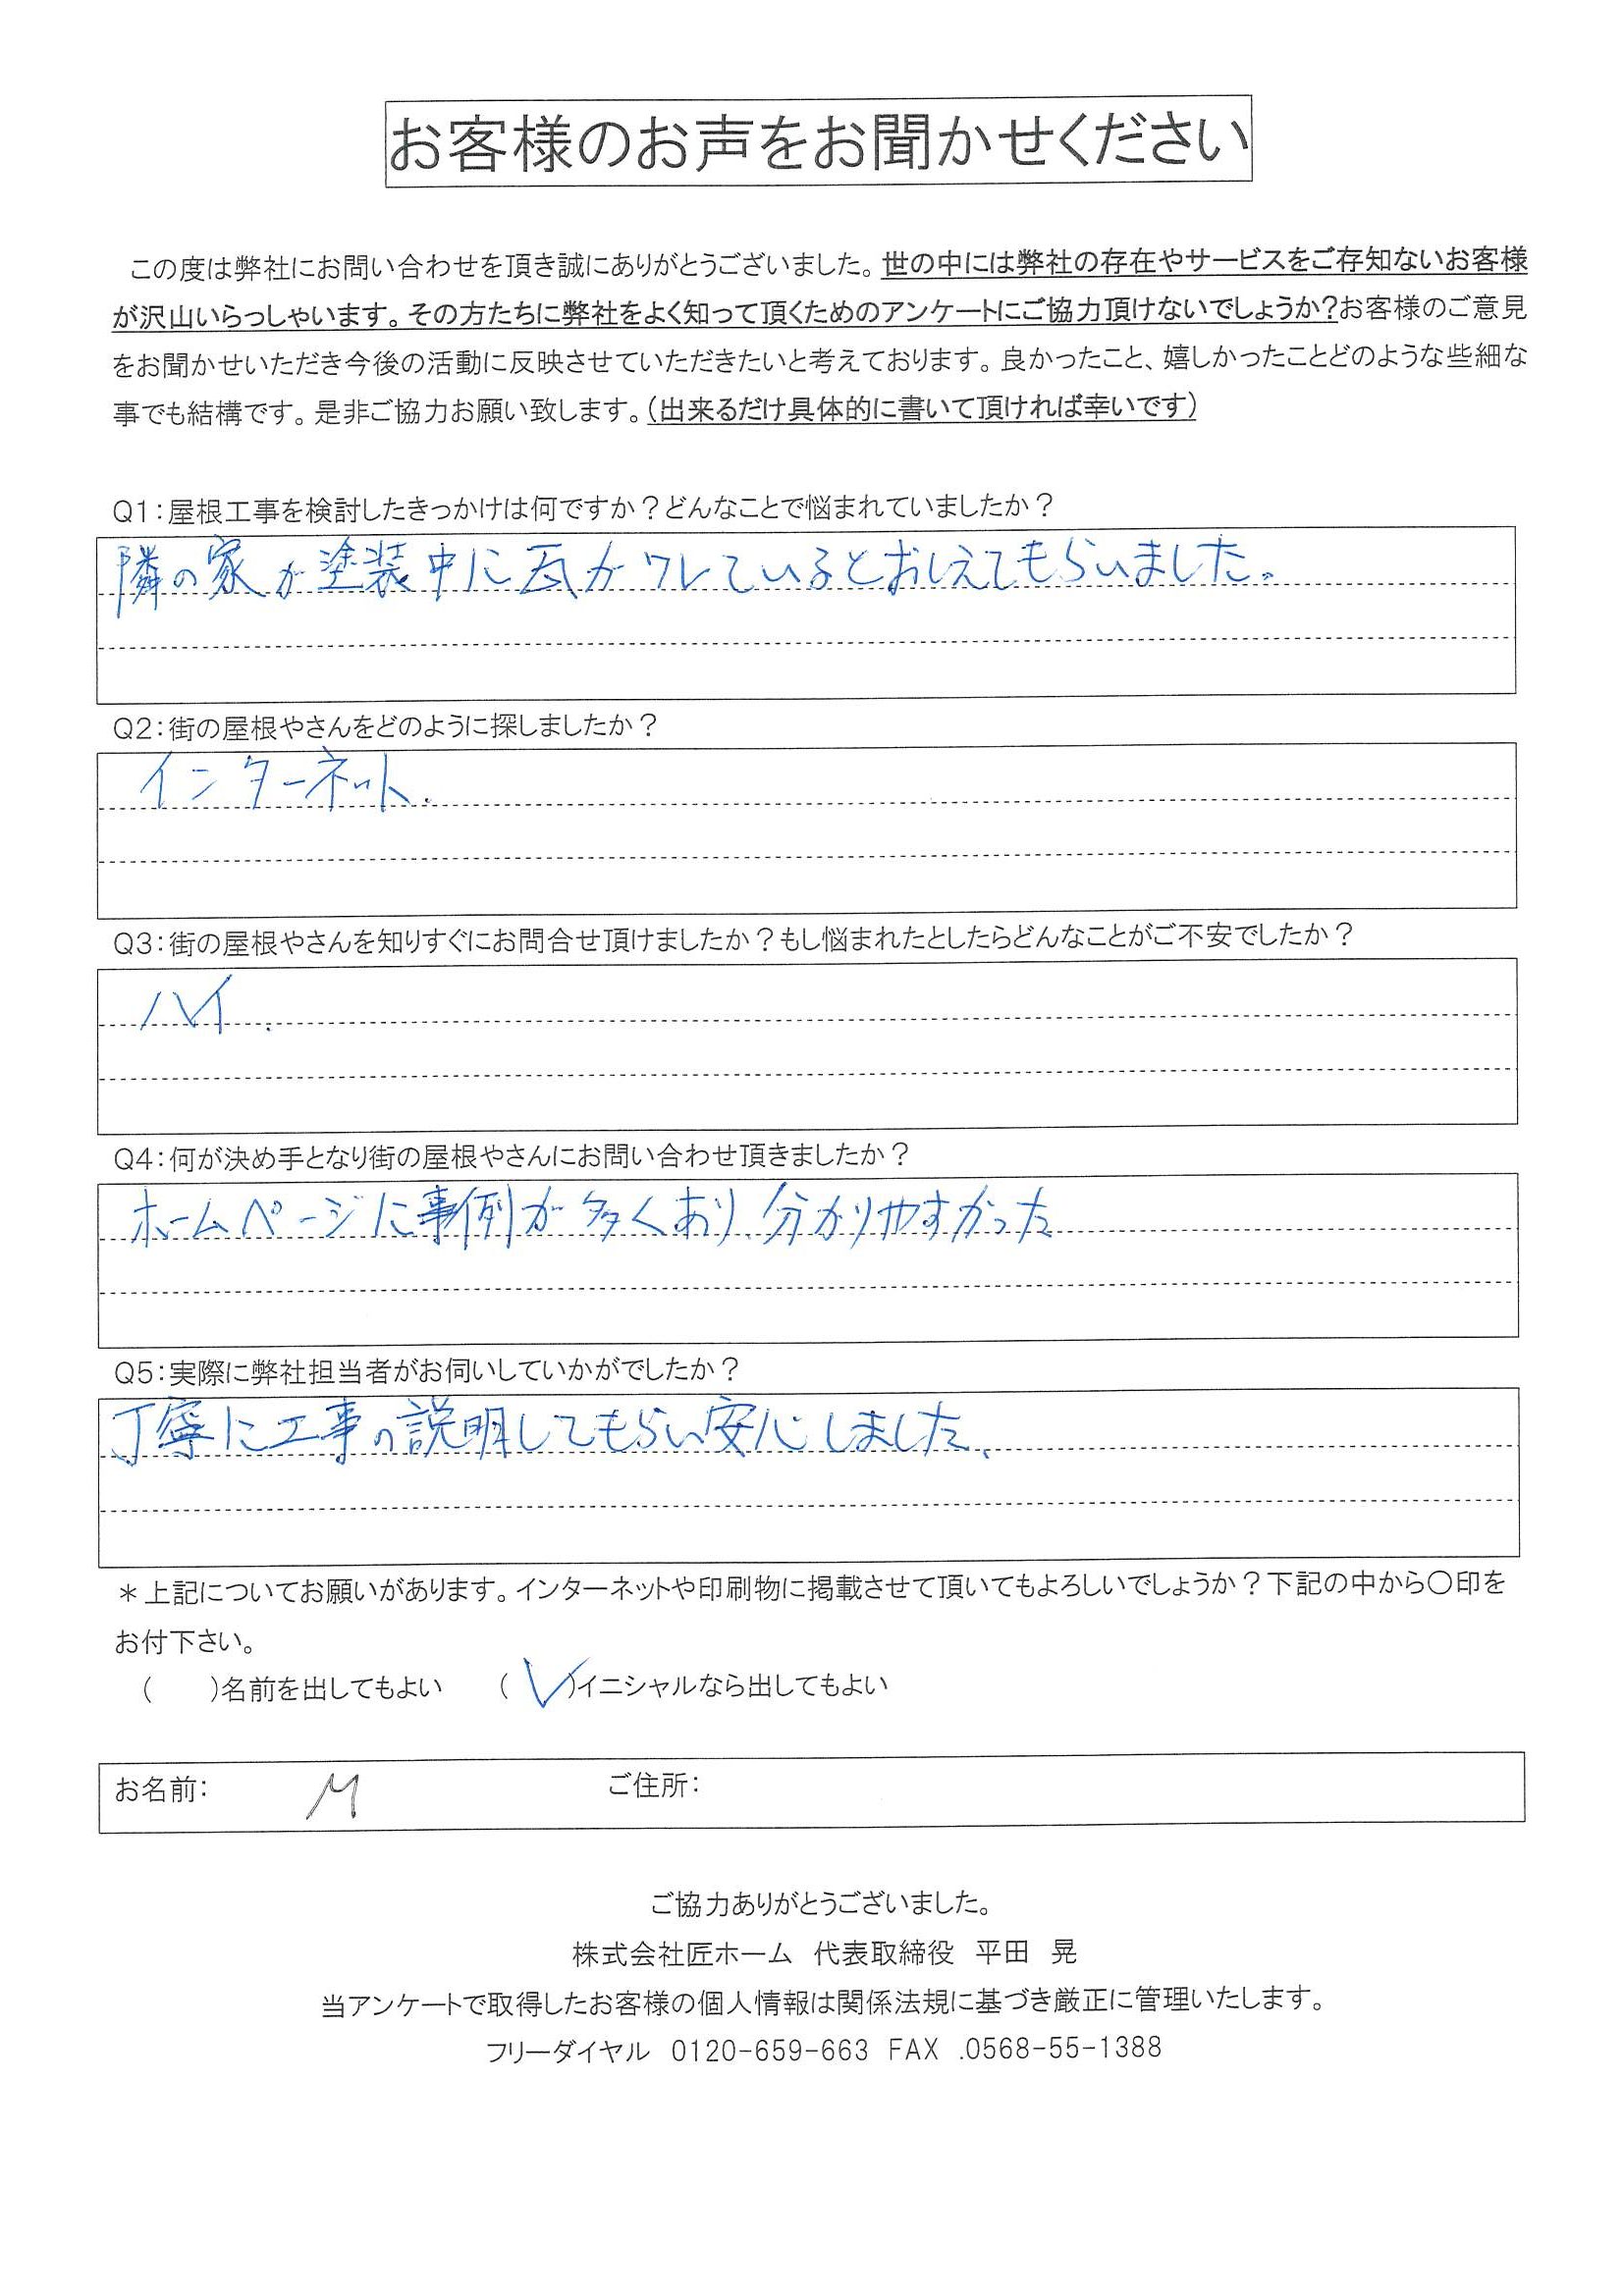 お客様のお声をお聞かせください
この度は弊社にお問い合わせを頂き誠にありがとうございました。世の中には弊社の存在やサービスをご存知ないお客様
が沢山いらっしゃいます。その方たちに弊社をよく知って頂くためのアンケートにご協力頂けないでしょうか?お客様のご意見
をお聞かせいただき今後の活動に反映させていただきたいと考えております。良かったこと、嬉しかったことどのような些細な
事でも結構です。是非ご協力お願い致します。(出来るだけ具体的に書いて頂ければ幸いです)
Q1:屋根工事を検討したきっかけは何ですか?どんなことで悩まれていましたか?
隣の家が塗装中に瓦がワレているとおしえてもらいました。
Q2:街の屋根やさんをどのように探しましたか?
インターネット.
Q3:街の屋根やさんを知りすぐにお問合せ頂けましたか?もし悩まれたとしたらどんなことがご不安でしたか?
ハイ.
Q4:何が決め手となり街の屋根やさんにお問い合わせ頂きましたか?
ホームページに事例が多くあり、分かりやすかった
Q5:実際に弊社担当者がお伺いしていかがでしたか?
丁寧に工事の説明してもらい安心しました、
*上記についてお願いがあります。インターネットや印刷物に掲載させて頂いてもよろしいでしょうか?下記の中から〇印を
お付下さい。
(　　)名前を出してもよい　　( ✓ )イニシャルなら出してもよい
お名前:　M　ご住所:
ご協力ありがとうございました。
株式会社匠ホーム　代表取締役　平田　晃
当アンケートで取得したお客様の個人情報は関係法規に基づき厳正に管理いたします。
フリーダイヤル　0120-659-663 FAX .0568-55-1388